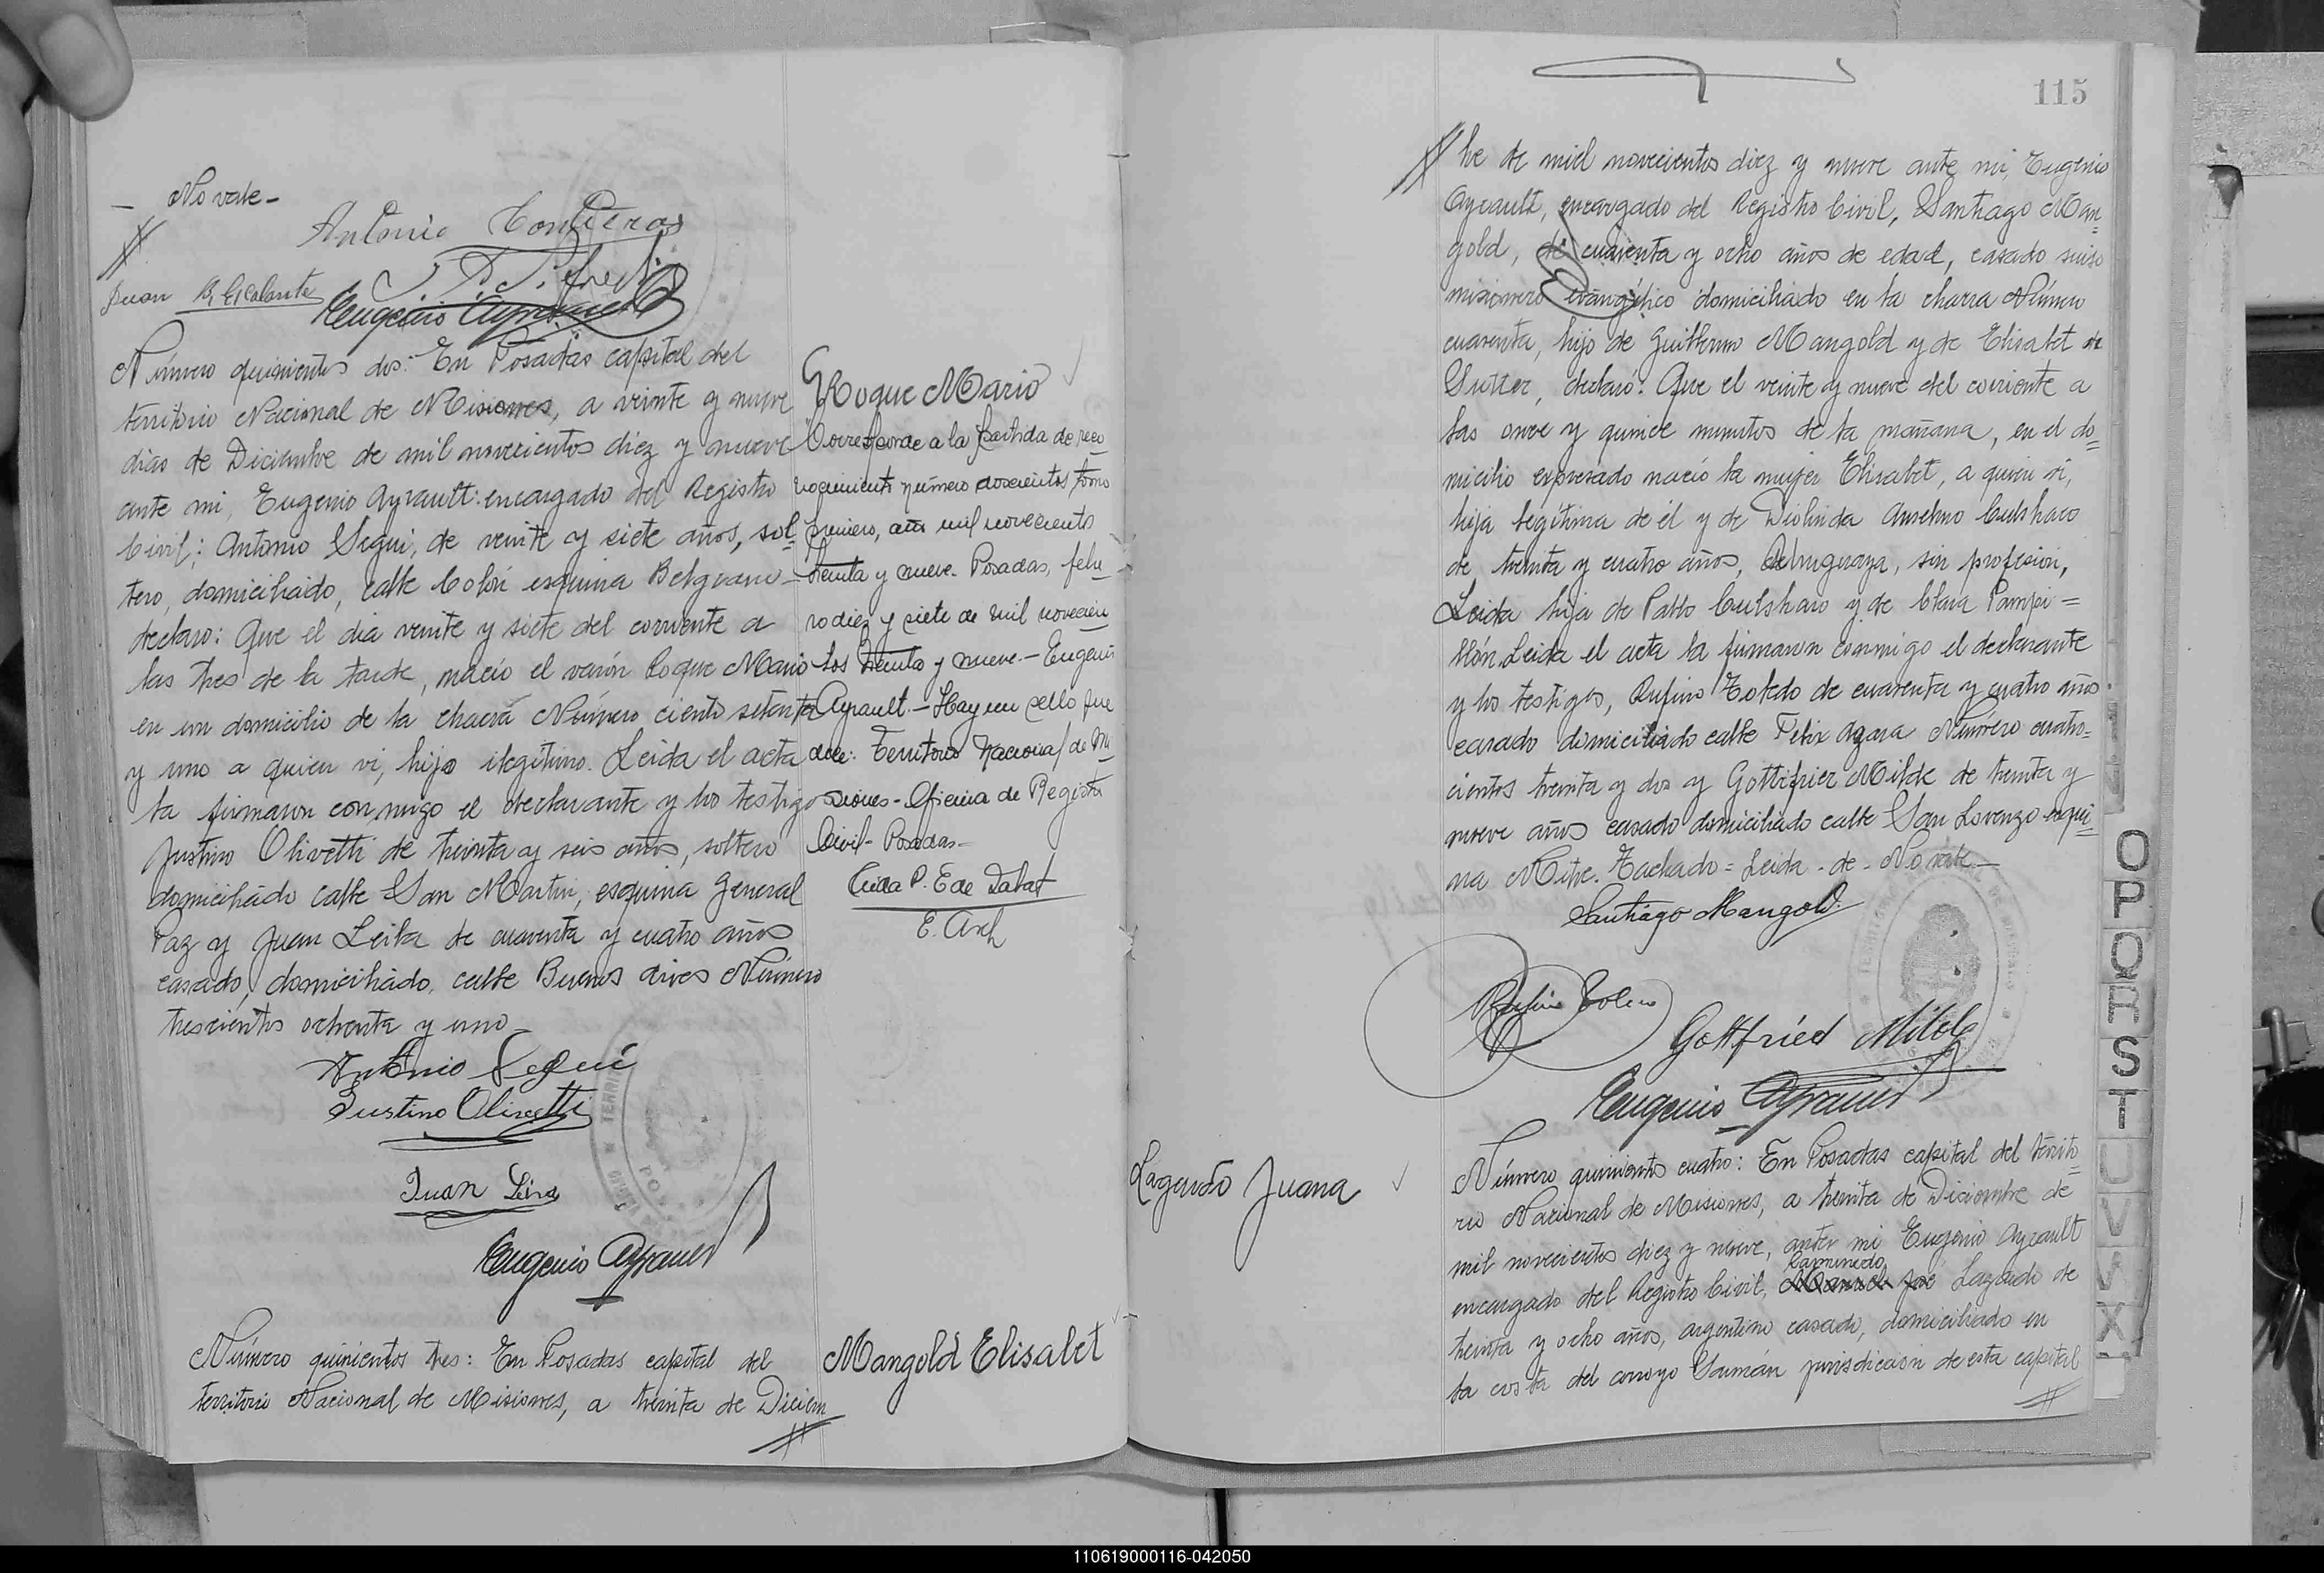 — No vale -
Antonio Contreras
Juan B. Escalante
Eugenio Ayrault
Número quinientos dos: En Posadas capital del
territorio Nacional de Misiones, a veinte y nueve
dias de Diciembre de mil novecientos diez y nueve
ante mi, Eugenio Ayrault: encargado del Registro
Civil; Antonio Segui, de veinte y siete años, sol=
tero, domiciliado, calle Colón esquina Belgrano -
declaro: Que el dia veinte y siete del corriente a
las tres de la tarde, nació el varón Roque Mario
en un domicilio de la chacra Número ciento setenta
y uno a quien vi, hijo ilegítimo. Leida el acta
la firmaron conmigo el declarante y los testigos
Justino Olivetti de treinta y seis años, soltero
domiciliado calle San Martin, esquina General
Paz y Juan Leiba de cuarenta y cuatro años
casado, domiciliado, calle Buenos Aires Número
trescientos ochenta y uno -
Antonio Segui
Justino Olivetti
Juan Leiva
Eugenio Ayrault
Número quinientos tres: En Posadas capital del
territorio Nacional de Misiones, a treinta de Diciem
Roque Mario
Corresponde a la partida de reco
nocimiento número doscientos tomo
primero, año mil novecientos
treinta y nueve. Posadas, febre
ro diez y siete de mil novecien
tos treinta y nueve. - Eugenio
Ayrault. - Hay un sello que
dice: Territorio Nacional de Mi
siones - Oficina de Registro
Civil - Posadas -
E. Arch
Mangold Elisabet
115
bre de mil novecientos diez y nueve ante mi, Eugenio
Ayrault, encargado del Registro Civil, Santiago Man=
gold, de cuarenta y ocho años de edad, casado suiso
misionero evangélico domiciliado en la chacra Número
cuarenta, hijo de Guillermo Mangold y de Elisabet de
Sutter, declaró: Que el veinte y nueve del corriente a
las once y quince minutos de la mañana, en el do=
micilio expresado nació la mujer Elisabet, a quien vi,
hija legítima de él y de Diolinda Anselmo Culshaw
de treinta y cuatro años, Uruguaya, sin profesión,
Leida hija de Pablo Culshaw y de Clara Pampi=
llón. Leida el acta la firmaron conmigo el declarante
y los testigos, Rufino Toledo de cuarenta y cuatro años
casado domiciliado calle Felix Azara Número cuatro=
cientos treinta y dos y Gottifrier Milde de treinta y
nueve años casado domiciliado calle San Lorenzo esqui=
na Mitre. Tachado = Leida - de - No vale -
Santiago Mangold
Rufino Toledo
Gottfried Milde
Eugenio Ayrault
Lagardo Juana
Número quinientos cuatro: En Posadas capital del territo=
rio Nacional de Misiones, a treinta de Diciembre de
mil novecientos diez y nueve, ante mi Eugenio Ayrault
Raimundo
encargado del Registro Civil, Manuel José Lagardo de
treinta y ocho años, argentino casado, domiciliado en
la costa del arroyo Zaimán jurisdiccion de esta capital
O
P
Q
R
S
T
U
V
X
110619000116-042050